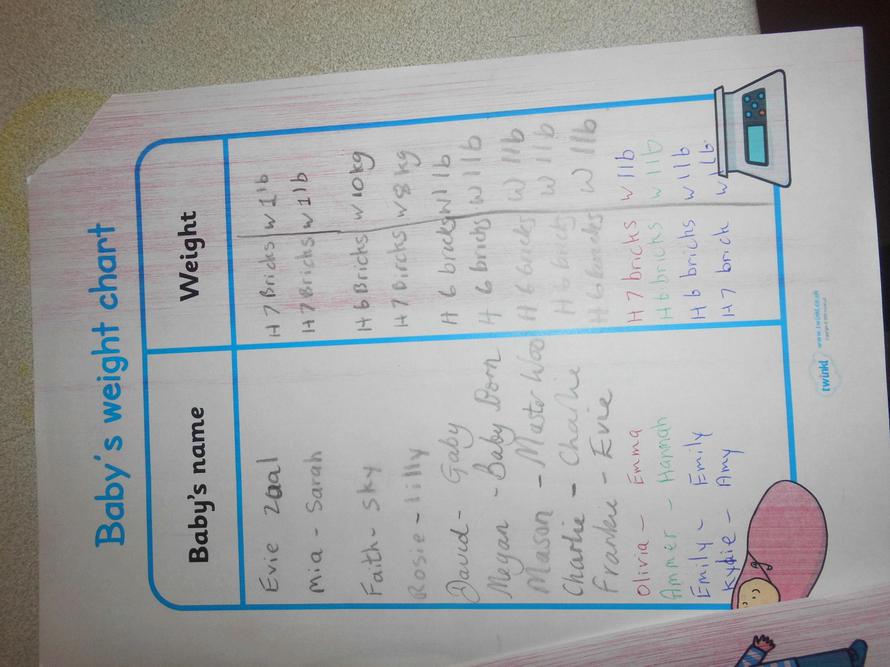 Baby's weight chart
Baby's name Weight
Evie zaal H 7 Bricks W 1 lb
Mia - Sarah H 7 Bricks W 1 lb
Faith - Sky H 6 Bricks W 10 kg
Rosie - lilly H 7 Bircks W 8 kg
David - Gaby H 6 bricks W 1 lb
Megan - Baby Born H 6 bricks W 1 lb
Mason - Master Woo H 6 bricks W 1 lb
Charlie - Charlie H 6 bricks W 1 lb
Frankie - Evie H 6 bricks W 1 lb
Olivia - Emma H 7 bricks W 1 lb
Ammer - Hannah H 6 bricks W 1 lb
Emily - Emily H 6 bricks W 1 lb
Kydie - Amy H 7 brick W 1 lb
twinkl www.twinkl.co.uk